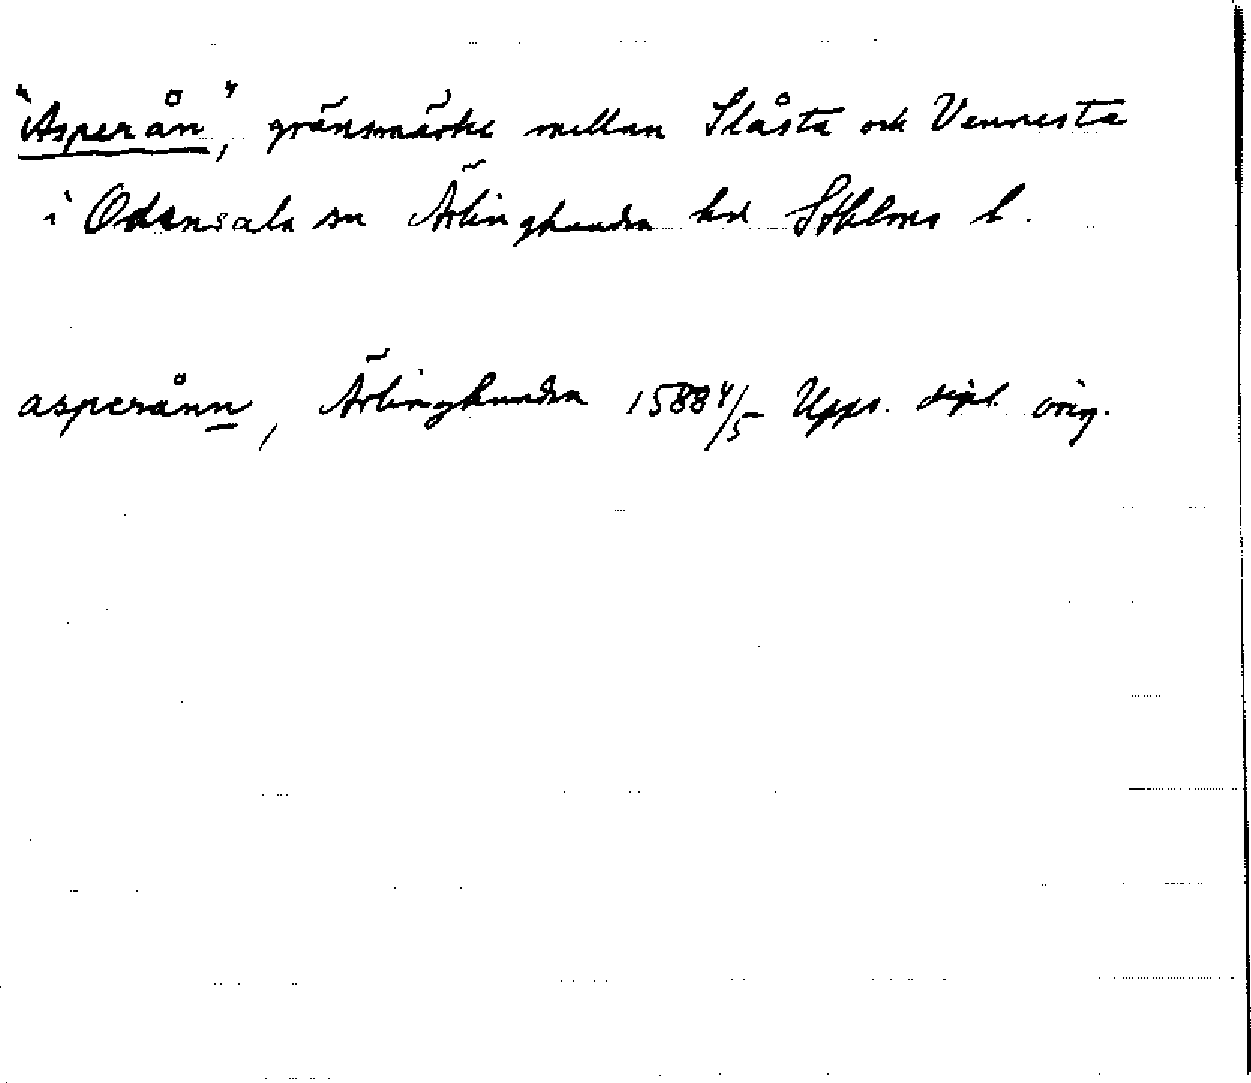 "Asperån", gränsmärke mellan Slåsta och Vennesta
i Odensala sn Ärlinghundra hd Sthlms l.
asperånn, Ärlinghundra 1588 4/5 Upps. dipl. orig.